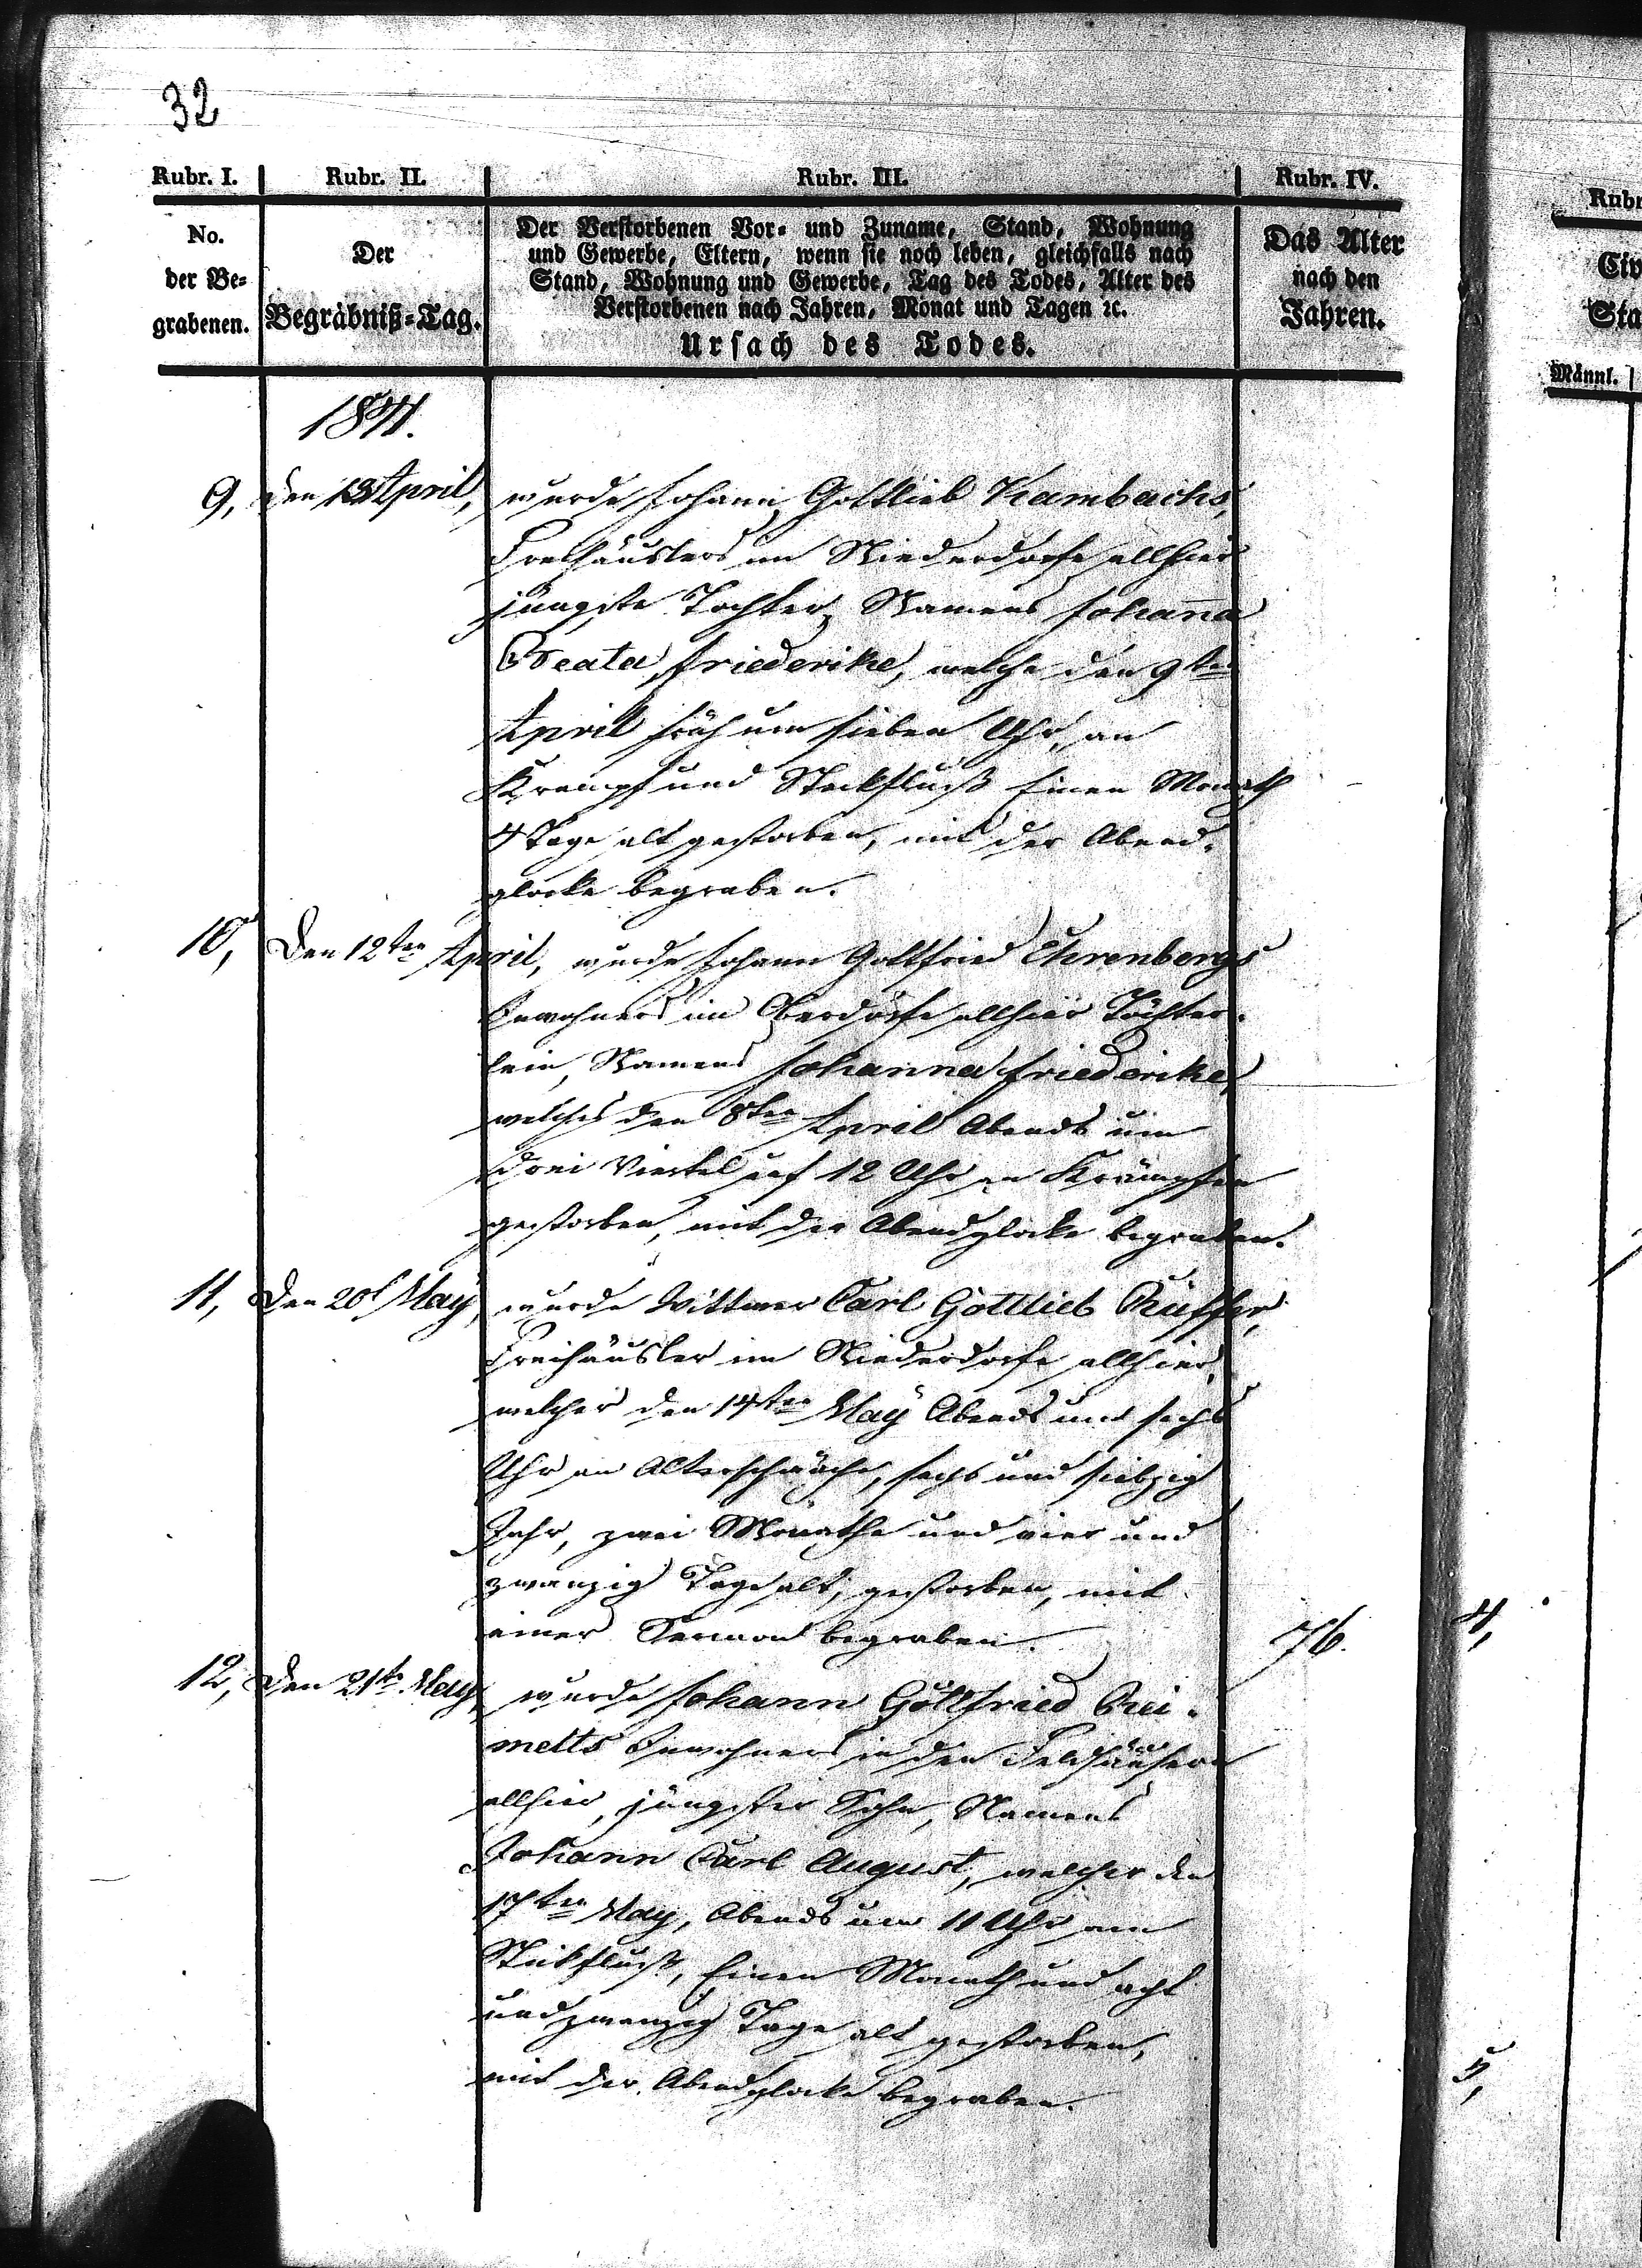 32
Rubr. I. Rubr. II. Rubr. III. Rubr. IV.
No.
der Be-
grabenen.
Der
Begräbniß-Tag.
Der Verstorbenen Vor- und Zuname, Stand, Wohnung
und Gewerbe, Eltern, wenn sie noch leben, gleichfalls nach
Stand, Wohnung und Gewerbe, Tag des Todes, Alter des
Verstorbenen nach Jahren, Monat und Tagen ꝛc.
Ursach des Todes.
Das Alter
nach den
Jahren.
Rubr
Civ
Sta
Männl.
1841.
9, den April, wurde Johann Gottlieb Kambachs,
Freihäuslers im Niederdorfe allhier
jüngste Tochter, Namens Johanna
Beata Friederike, welche den 9ten
April früh um sieben Uhr, an
Krampf und Steckfluß Einen Monath
4 Tage alt gestorben, mit der Abend-
glocke begraben.
10, Den 12ten April, wurde Johann Gottfried Ehrenbergs
Inwohners im Oberdorfe allhier Töchter-
lein, Namens Johanna Friederike,
welches den 8ten April Abends um
drei Viertel auf 12 Uhr an Krämpfen
gestorben, mit der Abendglocke begraben.
11, Den 20t May, wurde Wittwer Carl Gottlieb Rüffer,
Freihäusler im Niederdorfe allhier,
welcher den 14ten May Abends um sechs
Uhr an Alterschwäche, sechs und siebzig
Jahr, zwei Monathe und vier und
zwanzig Tage alt, gestorben, mit
einer Sermon begraben. 76. 4,
12, Den 21te May, wurde Johann Gottfried
metts Inwohners in den Feldhäusern
allhier, jüngster Sohn, Namens
Johann Carl August, welcher den
17ten May, Abends um 11 Uhr am
Stickfluß, Einen Monath und acht
und zwanzig Tage alt gestorben,
mit der Abendglocke begraben.
5,